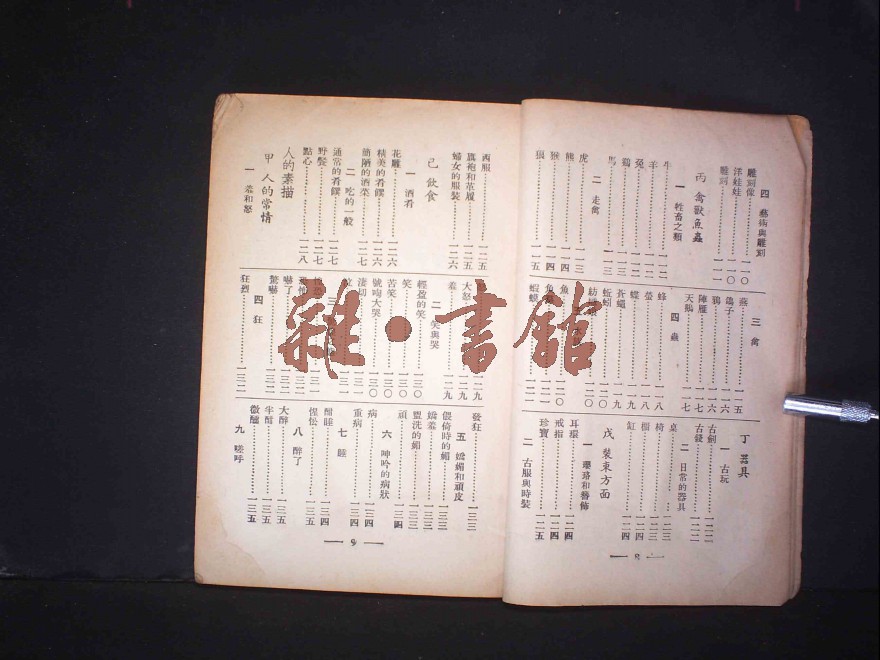 四 藝術與雕刻
雕刻像……一一〇
洋娃娃……一一〇
雕刻……一一一
丙 禽獸魚蟲
一 牲畜之類
牛……一一二
羊……一一二
兔……一一二
鷄……一一三
馬……一一三
二 走禽
虎……一一三
熊……一一四
猴……一一四
狼……一一五
三 禽
燕……一一五
鴿子……一一六
鴉……一一六
陣雁……一一七
天鵝……一一七
四 蟲
蜂……一一八
螢……一一八
蝶……一一九
蒼蠅……一一九
蚯蚓……一二〇
丁 器具
一 古玩
古劍……一二二
古錢……一二二
二 日常的器具
桌……一二三
椅……一二三
櫃……一二四
缸……一二四
戊 裝束方面
一 瓔珞和簪飾
耳環……一二四
戒指……一二四
珍寶……一二五
二 古服與時裝
— 8 —
西服……一二五
旗袍和革履……一二五
婦女的服裝……一二六
己 飲食
一 酒肴
花雕……一二六
精美的肴饌……一二六
簡陋的酒菜……一二七
二 吃的一般
通常的肴饌……一二七
野餐……一二七
點心……一二八
人的素描
甲 人的常情
一 羞和怒
大怒
羞……一二九
二 笑與哭
輕盈的笑……一三〇
笑……一三〇
苦笑……一三〇
號啕大哭……一三一
淒切
嚇了
驚嚇……一三二
四 狂
狂烈……一三二
發狂……一三三
五 嬌媚和頑皮
偎倚時的媚……一三三
嬌羞……一三三
盥洗的媚……一三三
頑……一三四
六 呻吟的病狀
病……一三四
重病……一三四
七 睡
酣睡……一三四
惺忪……一三五
八 醉了
大醉……一三五
半醋……一三五
微醺……一三五
九 嗟呼
— 9 —
雜·書館